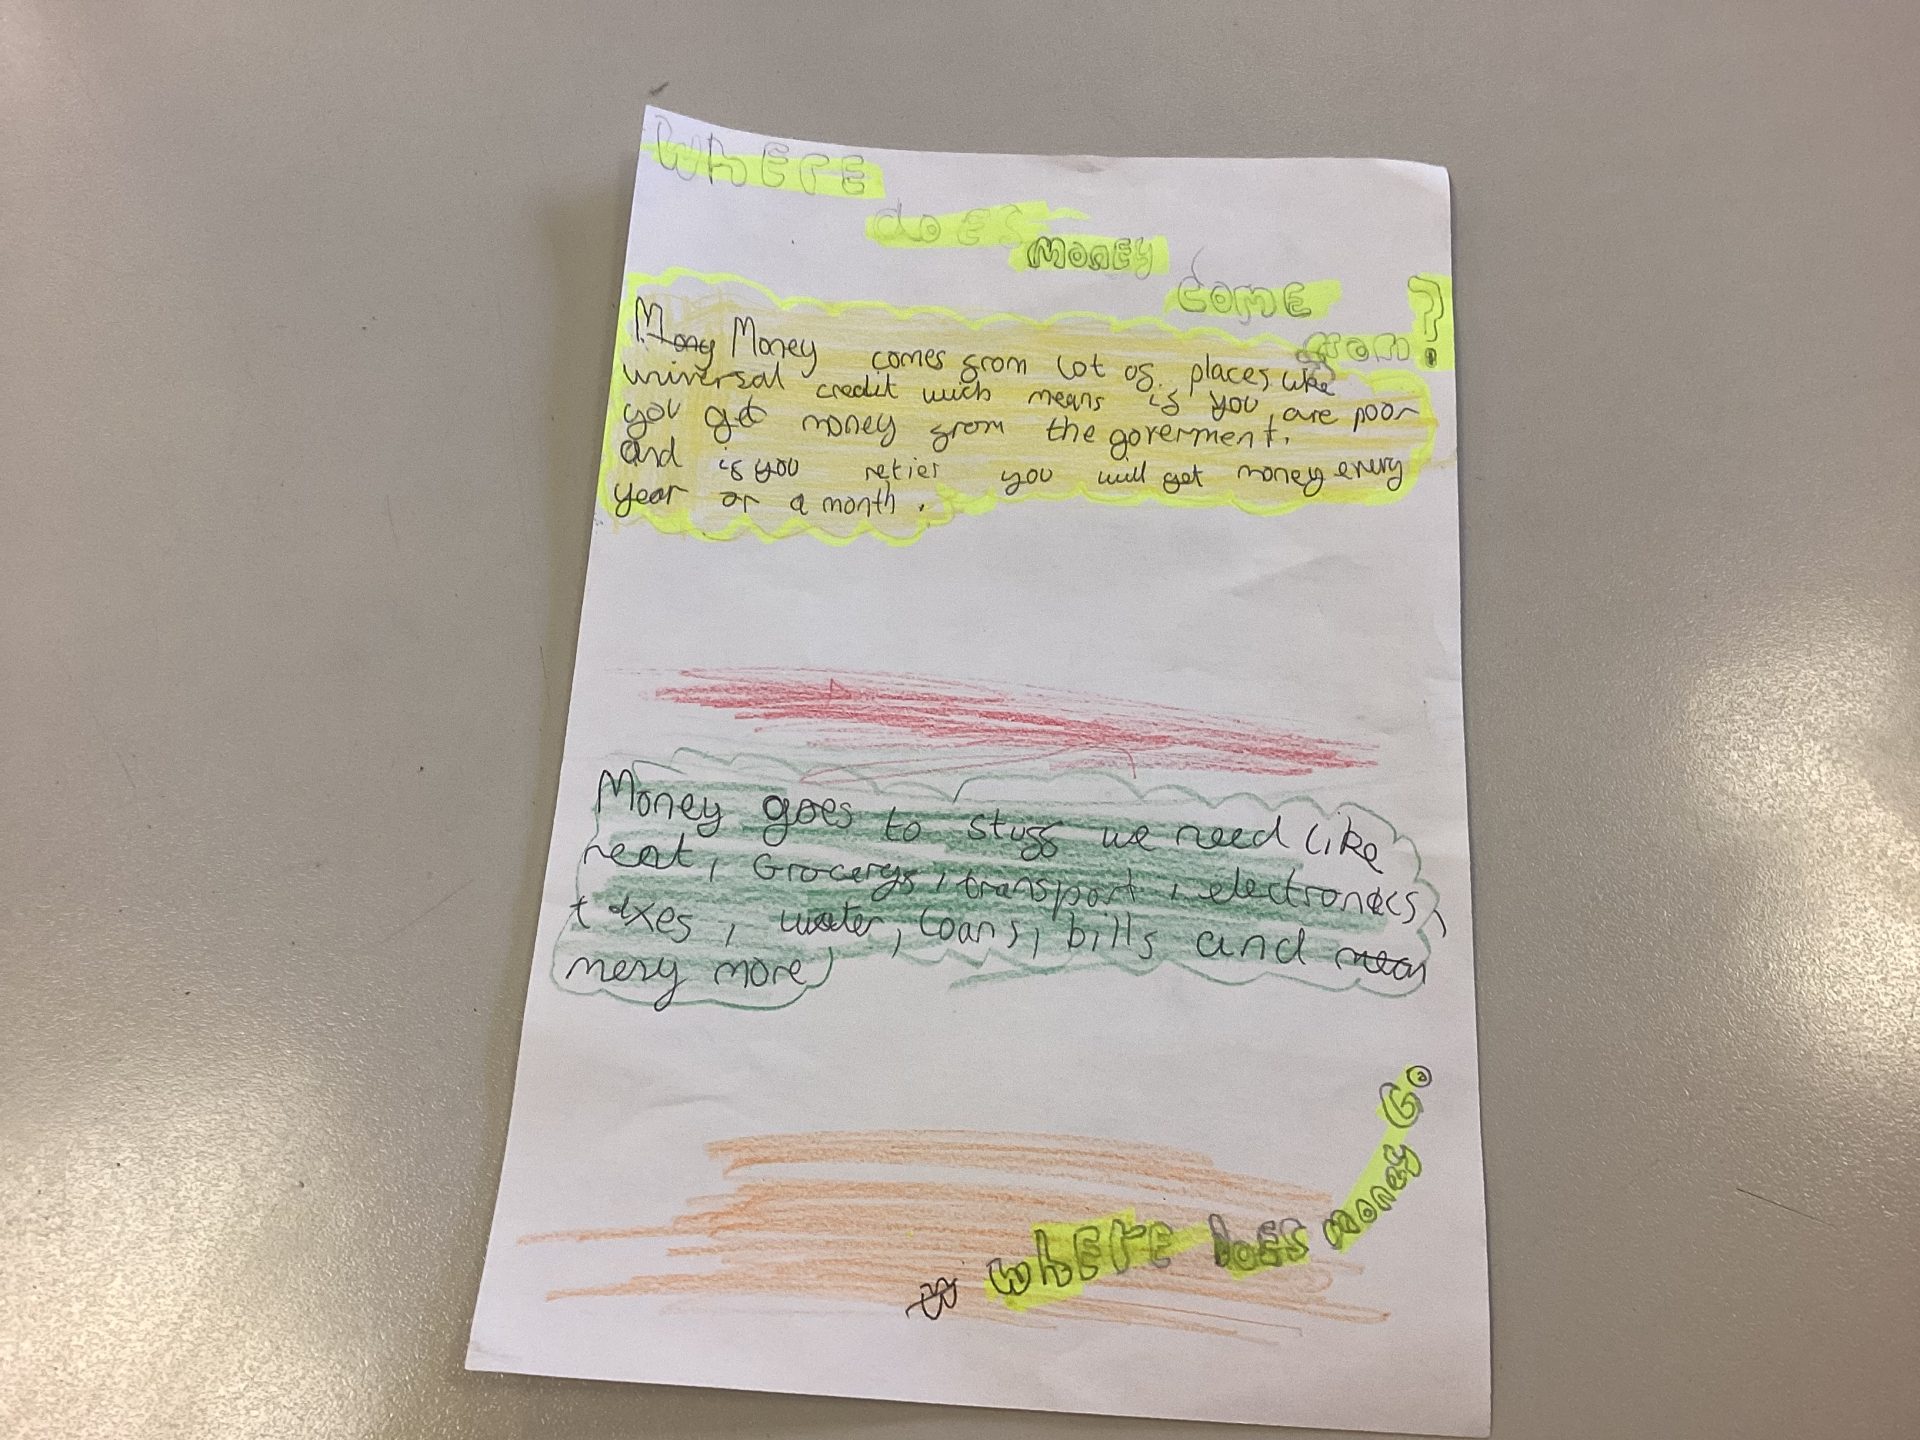 WhErE
doES
MonEy
ComE
from?
Mony Money comes from lot of places like
universal credit wich means if you are poor
you get money from the goverment.
and if you retier you will get money every
year or a month.
Money goes to stuff we need like
rent, Grocerys, transport, electronics,
taxes, water, loans, bills and mean
meny more
w whErE DoES money Go